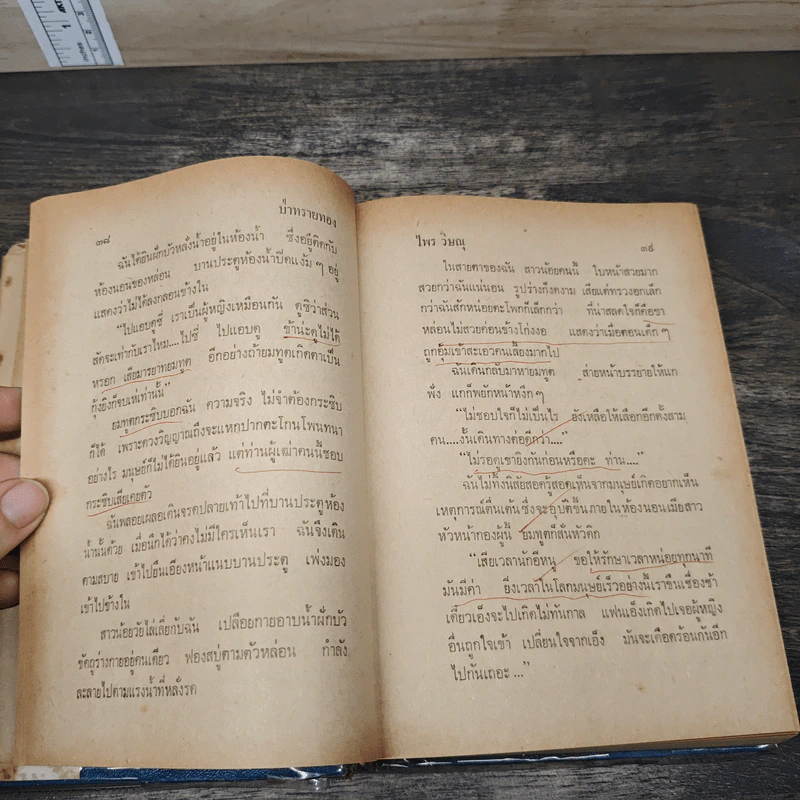 ป่าทรายทอง
๓๘
ฉันได้ยินฝักบัวหลั่งน้ำอยู่ในห้องน้ำ ซึ่งอยู่ติดกับ
ห้องนอนของหล่อน บานประตูห้องน้ำปิดแง้ม ๆ อยู่
แสดงว่าไม่ได้ลงกลอนข้างใน
“ไปแอบดูซี่ เราเป็นผู้หญิงเหมือนกัน ดูซิว่าส่วน
สัดจะเท่ากับเราไหม....ไปซี่ ไปแอบดู ข้าน่ะดูไม่ได้
หรอก เสียมารยาทยมทูต อีกอย่างถ้ายมทูตเกิดตาเป็น
กุ้งยิงก็จบเห่เท่านั้น”
ยมทูตกระซิบบอกฉัน ความจริง ไม่จำต้องกระซิบ
ก็ได้ เพราะดวงวิญญาณถึงจะแหกปากตะโกนโพนทนา
อย่างไร มนุษย์ก็ไม่ได้ยินอยู่แล้ว แต่ท่านผู้เฒ่าคนนี้ชอบ
กระซิบเสียเคยตัว
ฉันพลอยเผลอเดินจรดปลายเท้าไปที่บานประตูห้อง
น้ำนั้นด้วย เมื่อนึกได้ว่าคงไม่มีใครเห็นเรา ฉันจึงเดิน
ตามสบาย เข้าไปยืนเอียงหน้าแนบบานประตู เพ่งมอง
เข้าไปข้างใน
สาวน้อยวัยไล่เลี่ยกับฉัน เปลือยกายอาบน้ำฝักบัว
ขัดถูร่างกายอยู่คนเดียว ฟองสบู่ตามตัวหล่อน กำลัง
ละลายไปตามแรงน้ำที่หลั่งรด
ไพร วิษณุ
๓๙
ในสายตาของฉัน สาวน้อยคนนี้ ใบหน้าสวยมาก
สวยกว่าฉันแน่นอน รูปร่างก็งดงาม เสียแต่ทรวงอกเล็ก
กว่าฉันสักหน่อยตะโพกก็เล็กกว่า ที่น่าสลดใจก็คือขา
หล่อนไม่สวยค่อนข้างโก่งงอ แสดงว่าเมื่อตอนเด็ก ๆ
ถูกอุ้มเข้าสะเอวคนเลี้ยงมากไป
ฉันเดินกลับมาหายมทูต ส่ายหน้าบรรยายให้แก
ฟัง แกก็พยักหน้าหงึก ๆ
“ไม่ชอบใจก็ไม่เป็นไร ยังเหลือให้เลือกอีกตั้งสาม
คน....งั้นเดินทางต่อดีกว่า....”
“ไม่รอดูเขายิงกันก่อนหรือคะ ท่าน....”
ฉันไม่ทิ้งนิสัยสอดรู้สอดเห็นจากมนุษย์เกิดอยากเห็น
เหตุการณ์ตื่นเต้นซึ่งจะอุบัติขึ้นภายในห้องนอนเมียสาว
หัวหน้ากองผู้นี้ ยมทูตก็สั่นหัวดิก
“เสียเวลานักอีหนู ขอให้รักษาเวลาหน่อยทุกนาที
มันมีค่า ยิ่งเวลาในโลกมนุษย์เร็วอย่างนี้เราขืนเชื่องช้า
เดี๋ยวเอ็งจะไปเกิดไม่ทันกาล แฟนเอ็งเกิดไปเจอผู้หญิง
อื่นถูกใจเข้า เปลี่ยนใจจากเอ็ง มันจะเดือดร้อนกันอีก
ไปกันเถอะ ...”